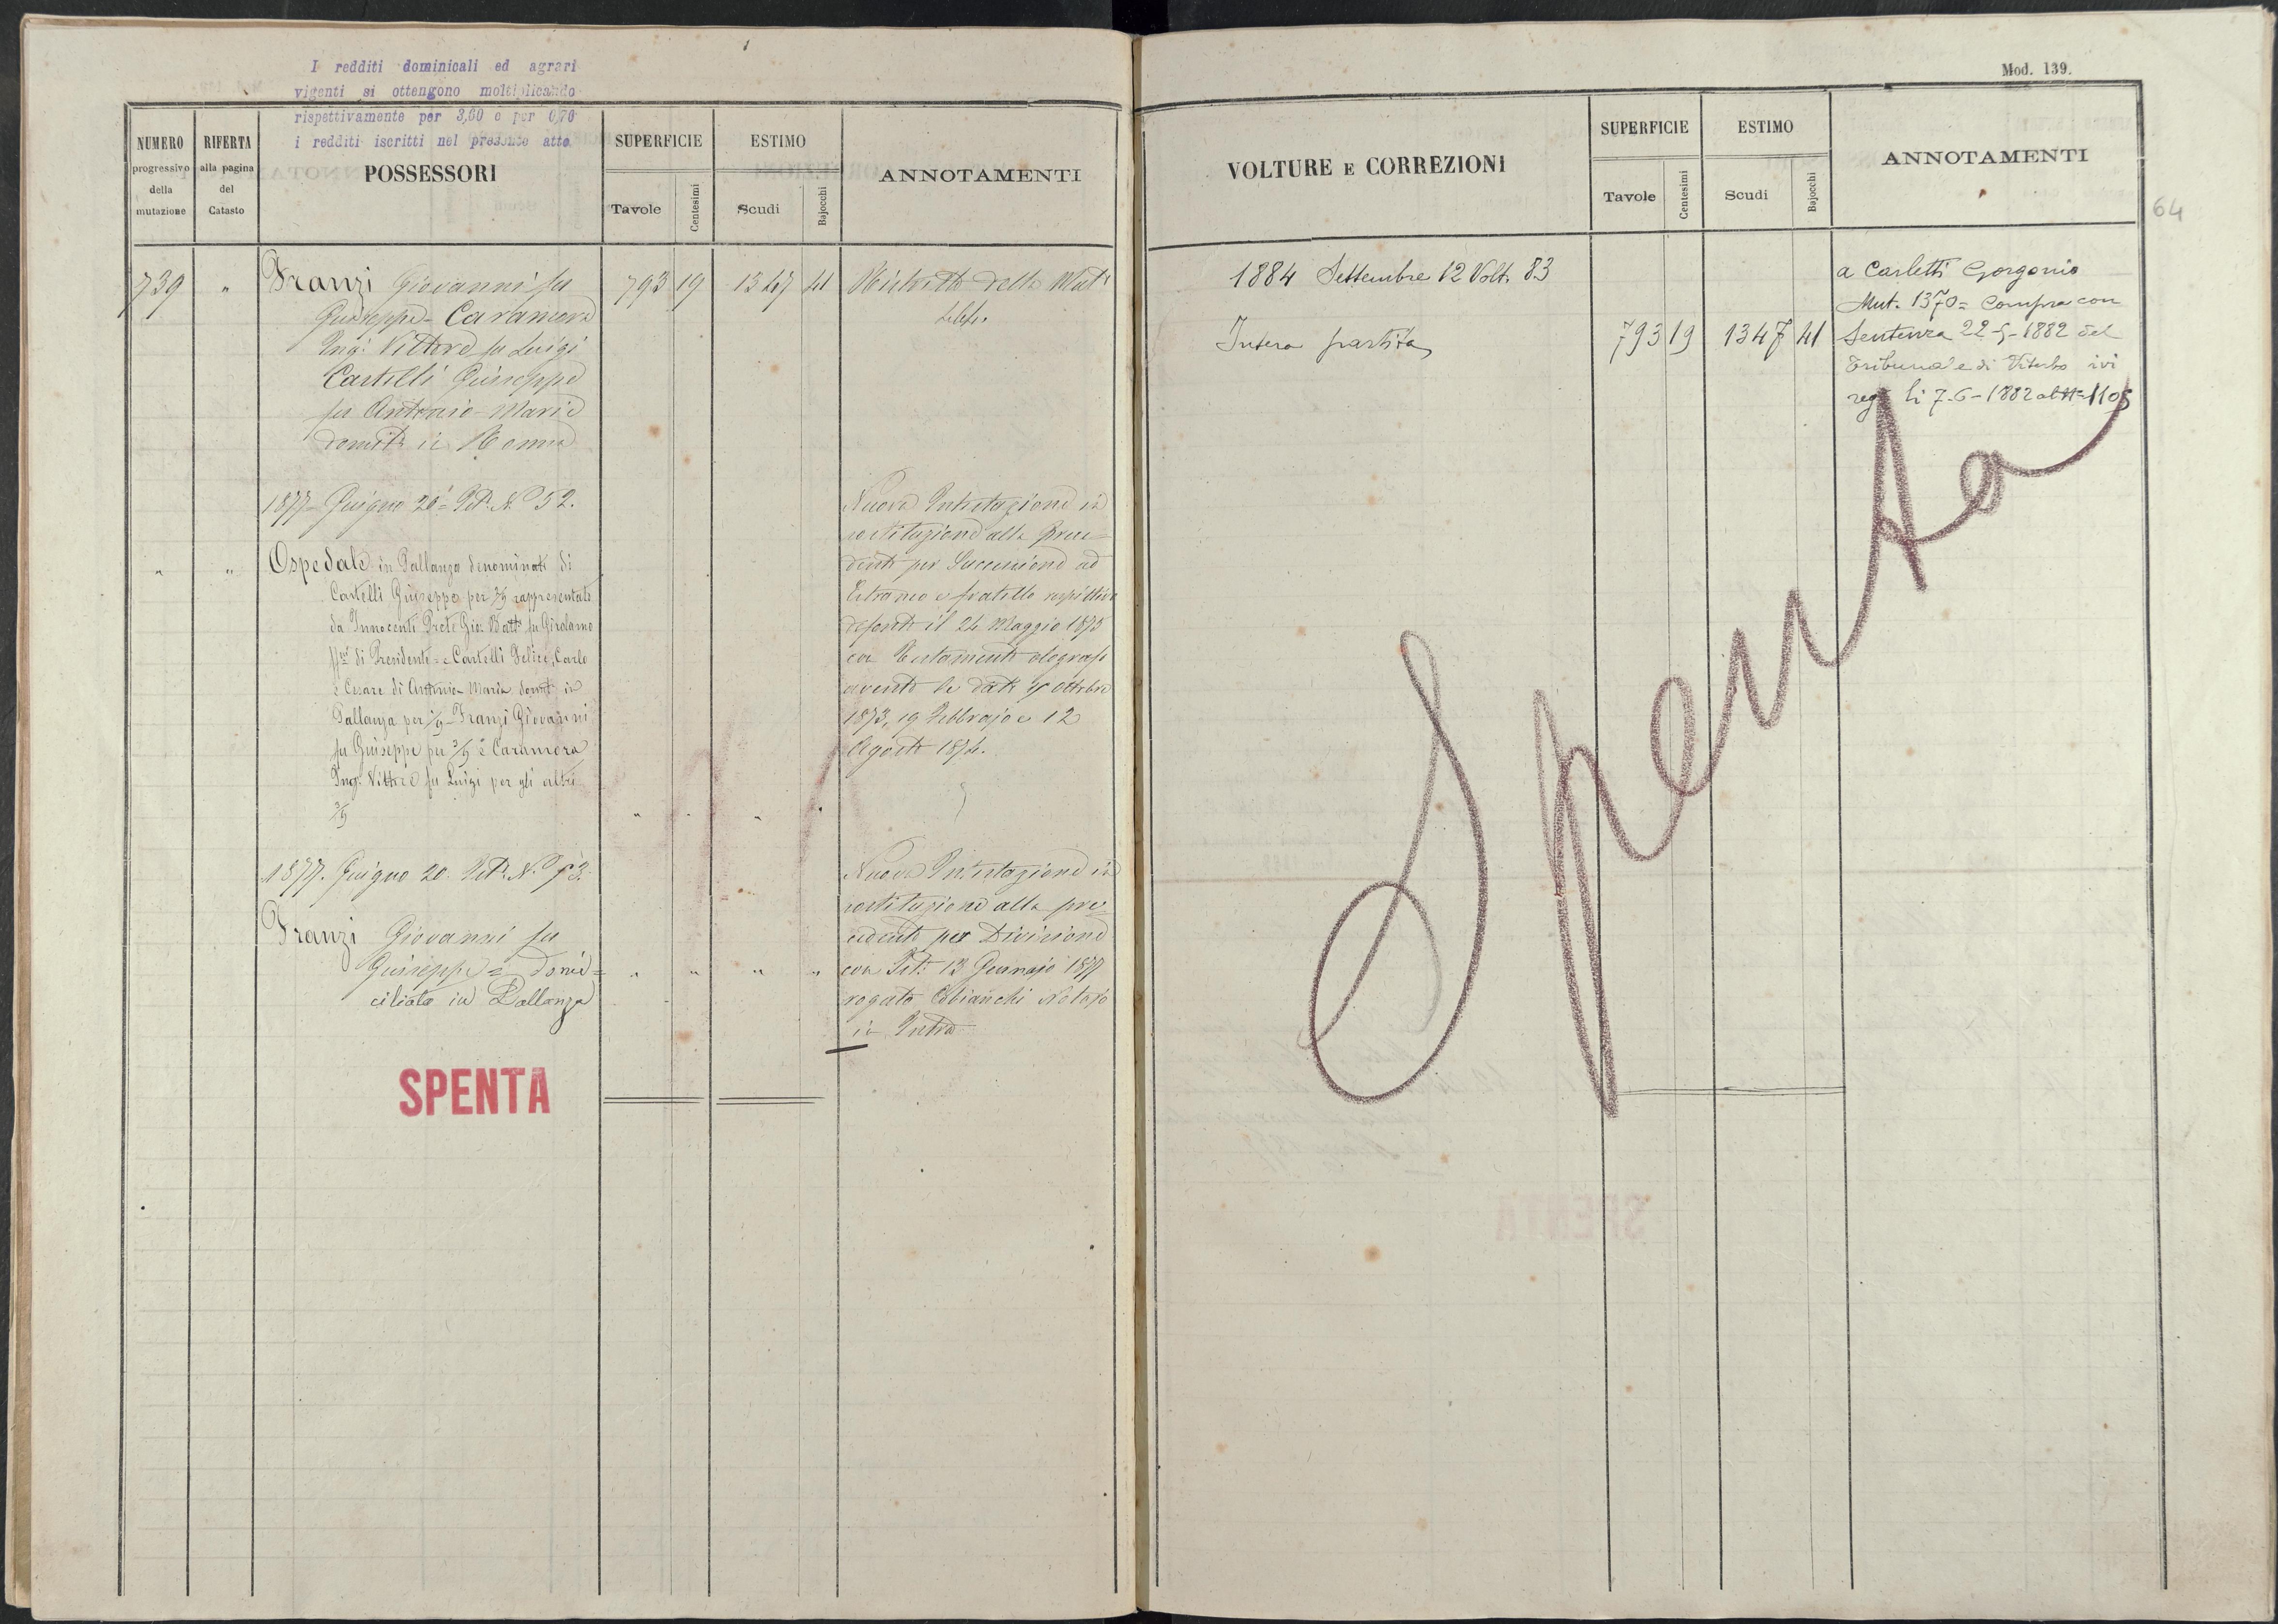 I redditi dominicali ed agrari
vigenti si ottengono moltiplicando
rispettivamente per 3,60 e per 0,70
i redditi iscritti nel presente atto
NUMERO
progressivo
della
mutazione
RIFERTA
alla pagina
del
Catasto
POSSESSORI
SUPERFICIE
Tavole
Centesimi
ESTIMO
Scudi
Bajocchi
ANNOTAMENTI
739 " Franzi Giovanni fu 793 19 1347 41 Ristretto della Mut.
Giuseppe - Caramora
Ing. Vittore fu Luigi
Castelli Giuseppe
fu Antonio Maria
domiti in Roma
1877 - Giugno 20 = Pet. N. 52.
Nuova Intestazione in
sostituzione alla prece=
dente per Successione ad
Estraneo e fratello rispettiva
defonto il 24 Maggio 1875
con Testamento olografo
avente le date 4 Ottobre
1873, 19 Febbrajo e 12
Agosto 1874.
" " Ospedale in Pallanza denominato di
Castelli Giuseppe per 2/9 rappresentato
da Innocenti Prete Gio: Batta fu Girolamo
ff.ni di Presidente = e Castelli Felice, Carlo
e Cesare di Antonio Maria domti in
Pallanza per 1/9 - Franzi Giovanni
fu Giuseppe per 3/9 e Caramora
Ing. Vittore fu Luigi per gli altri
3/9 " " " "
1877. Giugno 20. Pet. N. 53.
Nuova Intestazione in
sostituzione alla pre=
cedente per Divisione
con Ist. 13 Gennajo 1877
rogato Cobianchi Notajo
in Intra
Franzi Giovanni fu
Giuseppe = domi=
ciliato in Pallanza
" " " "
SPENTA
Mod. 139.
64
VOLTURE E CORREZIONI
SUPERFICIE
Tavole
Centesimi
ESTIMO
Scudi
Bajocchi
ANNOTAMENTI
1884 Settembre 12 Volt. 83
Intera partita 793 19 1347 41
a Carletti Gorgonio
Mut. 1370 = Compra con
Sentenza 22-5-1882 del
Tribunale di Viterbo ivi
reg. li 7-6-1882 al N. 1105
Spenta